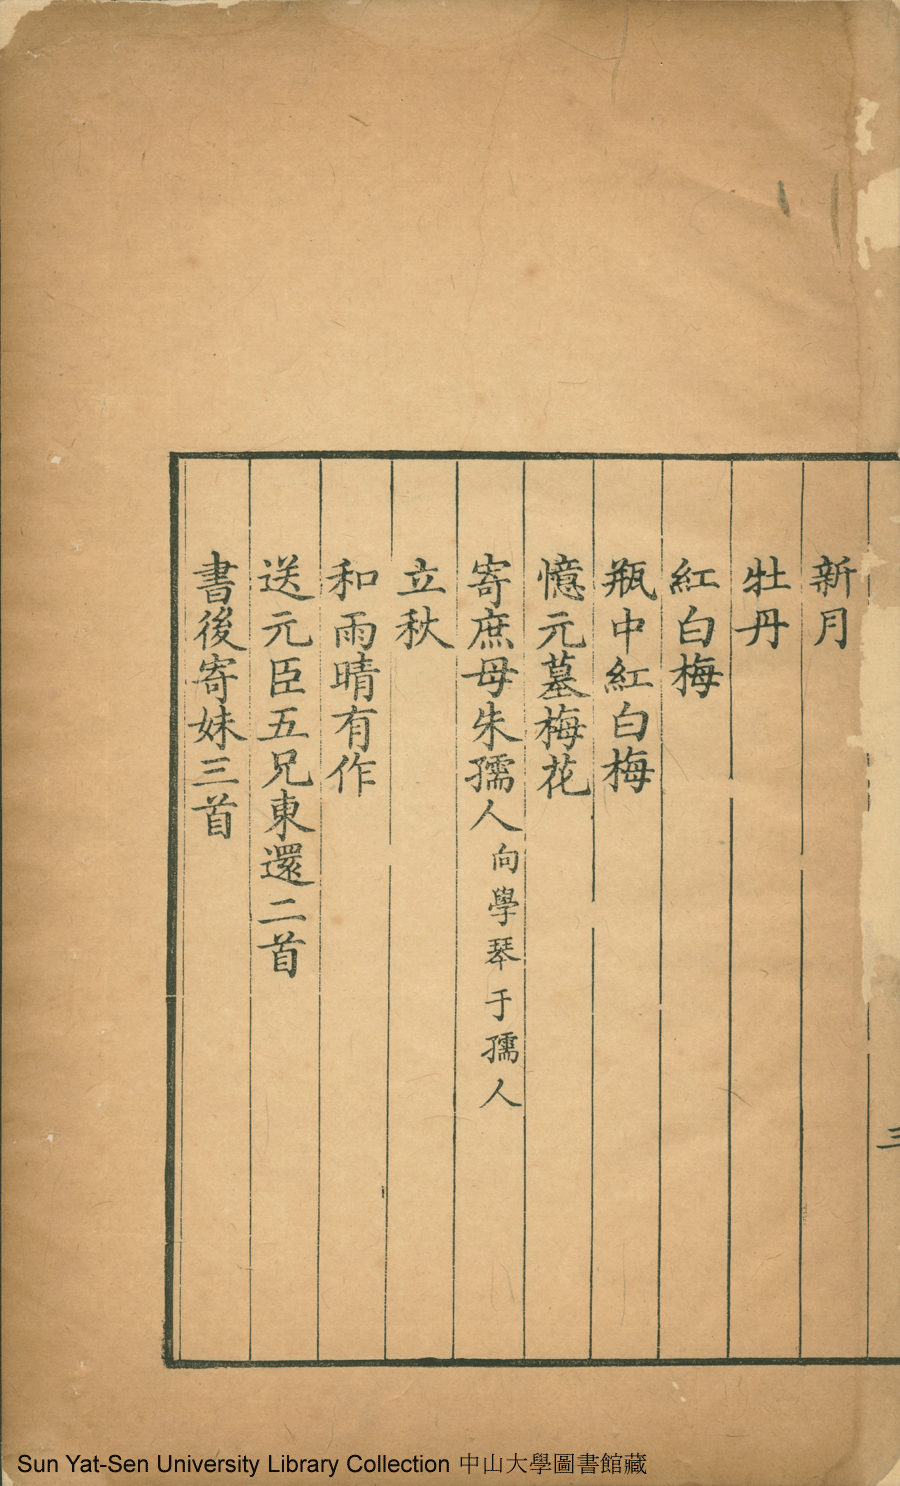 三
新月
牡丹
紅白梅
瓶中紅白梅
憶元墓梅花
寄庶母朱孺人向學琴于孺人
立秋
和雨晴有作
送元臣五兄東還二首
書後寄妹三首
Sun Yat-Sen University Library Collection 中山大學圖書館藏